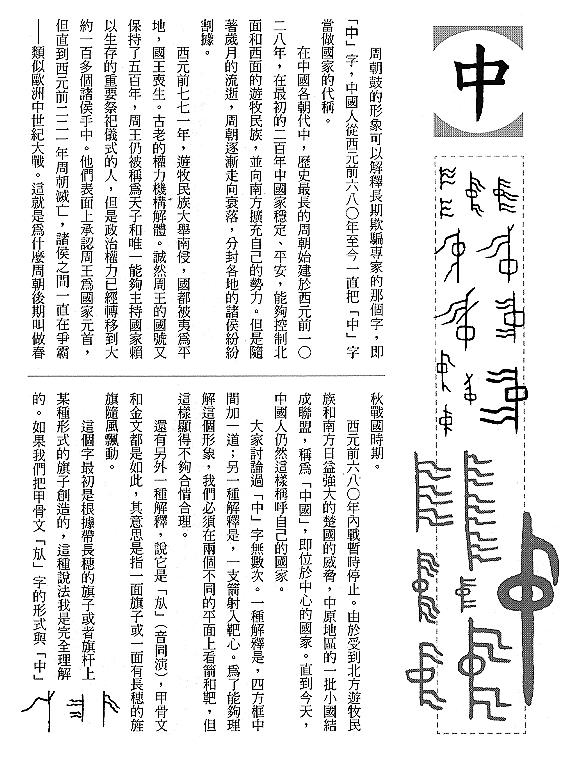 中
周朝鼓的形象可以解釋長期欺騙專家的那個字，即
「中」字，中國人從西元前六八〇年至今一直把「中」字
當做國家的代稱。
在中國各朝代中，歷史最長的周朝始建於西元前一〇
二八年，在最初的二百年中國家穩定、平安，能夠控制北
面和西面的遊牧民族，並向南方擴充自己的勢力。但是隨
著歲月的流逝，周朝逐漸走向衰落，分封各地的諸侯紛紛
割據。
西元前七七一年，遊牧民族大舉南侵，國都被夷爲平
地，國王喪生。古老的權力機構解體。誠然周王的國號又
保持了五百年，周王仍被稱爲天子和唯一能夠主持國家賴
以生存的重要祭祀儀式的人，但是政治權力已經轉移到大
約一百多個諸侯手中。他們表面上承認周王爲國家元首，
但直到西元前二二一年周朝滅亡，諸侯之間一直在爭霸
——類似歐洲中世紀大戰。這就是爲什麼周朝後期叫做春
秋戰國時期。
西元前六八〇年內戰暫時停止。由於受到北方遊牧民
族和南方日益強大的楚國的威脅，中原地區的一批小國結
成聯盟，稱爲「中國」，即位於中心的國家。直到今天，
中國人仍然這樣稱呼自己的國家。
大家討論過「中」字無數次。一種解釋是，四方框中
間加一道；另一種解釋是，一支箭射入靶心。爲了能夠理
解這個形象，我們必須在兩個不同的平面上看箭和靶，但
這樣顯得不夠合情合理。
還有另外一種解釋，說它是「㫃」（音同演），甲骨文
和金文都是如此，其意思是指一面旗子或一面有長穗的旌
旗隨風飄動。
這個字最初是根據帶長穗的旗子或者旗杆上
某種形式的旗子創造的，這種說法我是完全理解
的。如果我們把甲骨文「㫃」字的形式與「中」